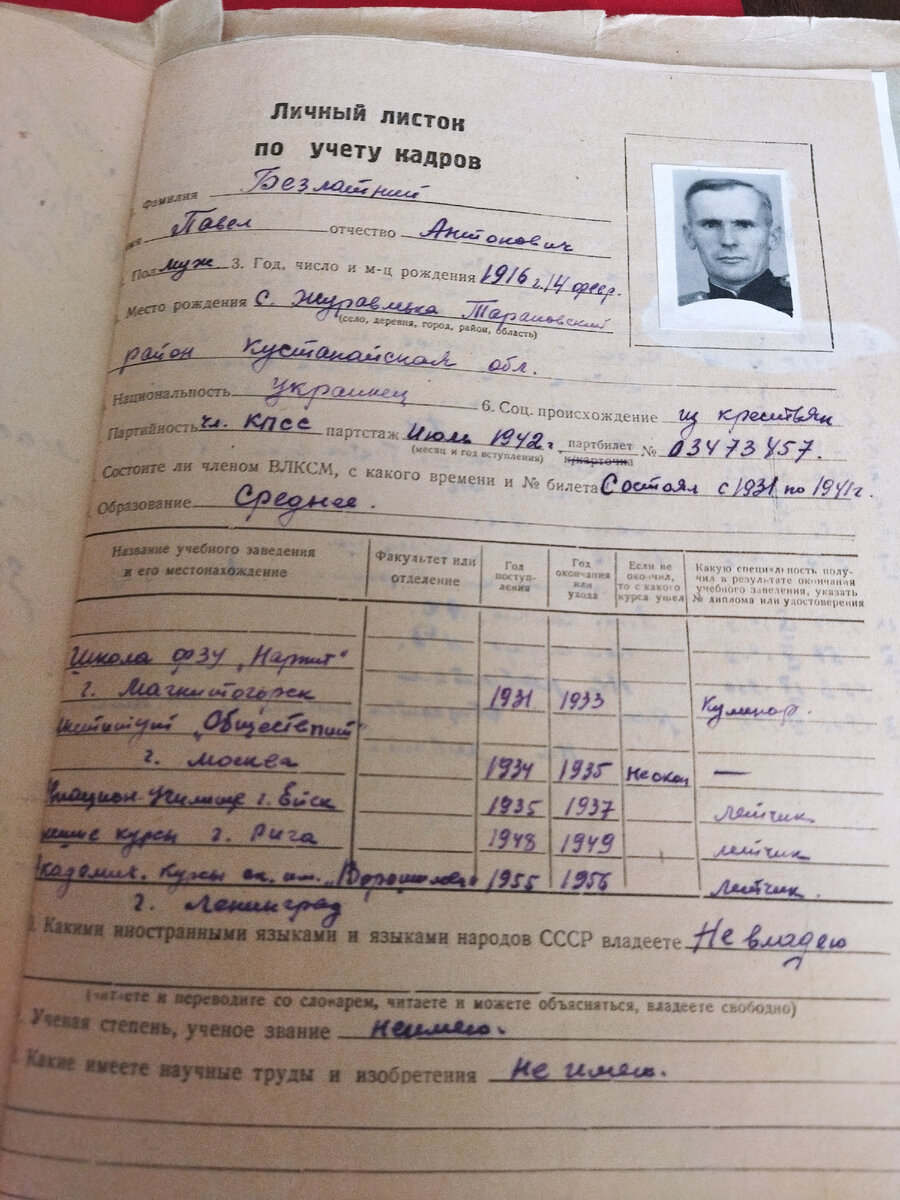 Личный листок
по учету кадров
Фамилия Безлатний
мя Павел отчество Антонович
Пол муж 3. Год, число и м-ц рождения 1916 г. 14 февр.
Место рождения с. Журавлевка Тарановский
(село, деревня, город, район, область)
район Кустанайская обл.
Национальность украинец 6. Соц. происхождение из крестьян
Партийность чл. КПСС партстаж Июль 1942 г. партбилет к/карточка № 03473457.
(месяц и год вступления)
Состоите ли членом ВЛКСМ, с какого времени и № билета Состоял с 1931 по 1941 г.
Образование Среднее.
Название учебного заведения и его местонахождение Факультет или отделение Год поступления Год окончания или ухода Если не окончил, то с какого курса ушел Какую специальность получил в результате окончания учебного заведения, указать № диплома или удостоверения
Школа ФЗУ „Нарпит"
г. Магнитогорск 1931 1933 Кулинар.
нститут „Общественпит"
г. Москва 1934 1935 Не окон —
виацион. училище г. Ейск 1935 1937 летчик
курсы г. Рига 1948 1949 летчик
кадемич. курсы ак. им. „Ворошилова" 1955 1956 летчик.
г. Ленинград
Какими иностранными языками и языками народов СССР владеете Не владею
(читаете и переводите со словарем, читаете и можете объясняться, владеете свободно)
Ученая степень, ученое звание не имею.
Какие имеете научные труды и изобретения Не имею.